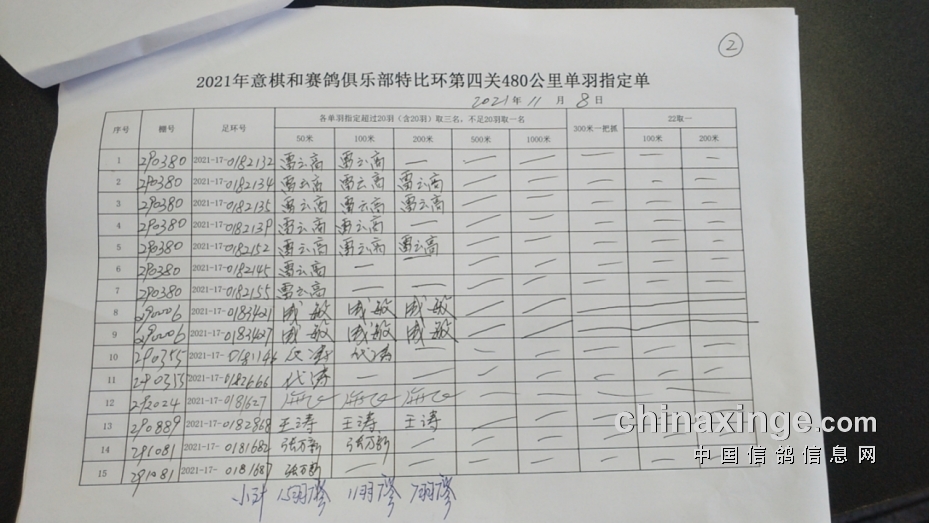 ②
2021年意棋和赛鸽俱乐部特比环第四关480公里单羽指定单
2021年 11 月 8 日
序号 棚号 足环号 各单羽指定超过20羽（含20羽）取三名，不足20羽取一名 300米一把抓 22取一
50米 100米 200米 500米 1000米 100米 200米
1 290380 2021-17-0182132 雷云高 雷云高 — — — — — —
2 290380 2021-17-0182134 雷云高 雷云高 雷云高 — — — — —
3 290380 2021-17-0182135 雷云高 雷云高 雷云高 — — — — —
4 290380 2021-17-0182139 雷云高 雷云高 — — — — — —
5 290380 2021-17-0182152 雷云高 雷云高 雷云高 — — — — —
6 290380 2021-17-0182145 雷云高 — — — — — — —
7 290380 2021-17-0182155 雷云高 — — — — — — —
8 290006 2021-17-0183421 敏 敏 敏 — — —
9 290006 2021-17-0183427 敏 敏 敏 — — —
10 290355 2021-17- 代涛 代涛 — — — — — —
11 2021-17-0182666 代涛 — — — — — — —
12 292024 2021-17-0181627 — — — — —
13 290889 2021-17-0182868 王涛 王涛 王涛 — — — — —
14 291081 2021-17-0181682 张万新 张万新 — — — —
15 291081 2021-17-0181687 张万新 — — — — —
小计 15羽 11羽 7羽
chinaxinge.com
中国信鸽信息网